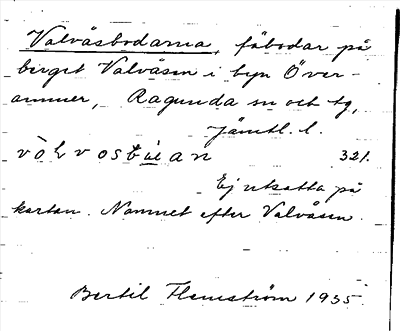 Valvåsbodarna, fäbodar på
berget Valvåsen i byn Över-
ammer, Ragunda sn och tg,
Jämtl. l.
vòlvosbu̇an 321.
Ej utsatta på
kartan. Namnet efter Valvåsen.
Bertil Flemström 1935